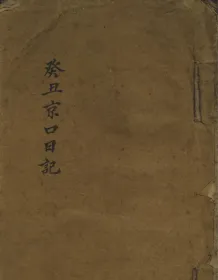 癸丑京口日記